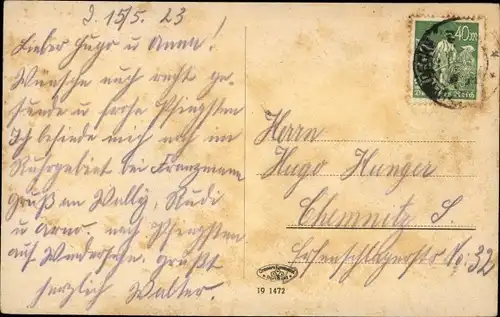 d. 15/5. 23
Lieber Hugo u Anna!
Wünsche euch recht ge-
sunde u frohe Pfingsten
Ich befinde mich noch im
Ruhrgebiet bei Franzmann
Gruß an Wally, Rudi
u Arno. nach Pfingsten
auf Wiedersehen. grüßt
herzlich Walter.
40 M
Herrn
Hugo Hunger
Chemnitz S.
No: 32
19 1472